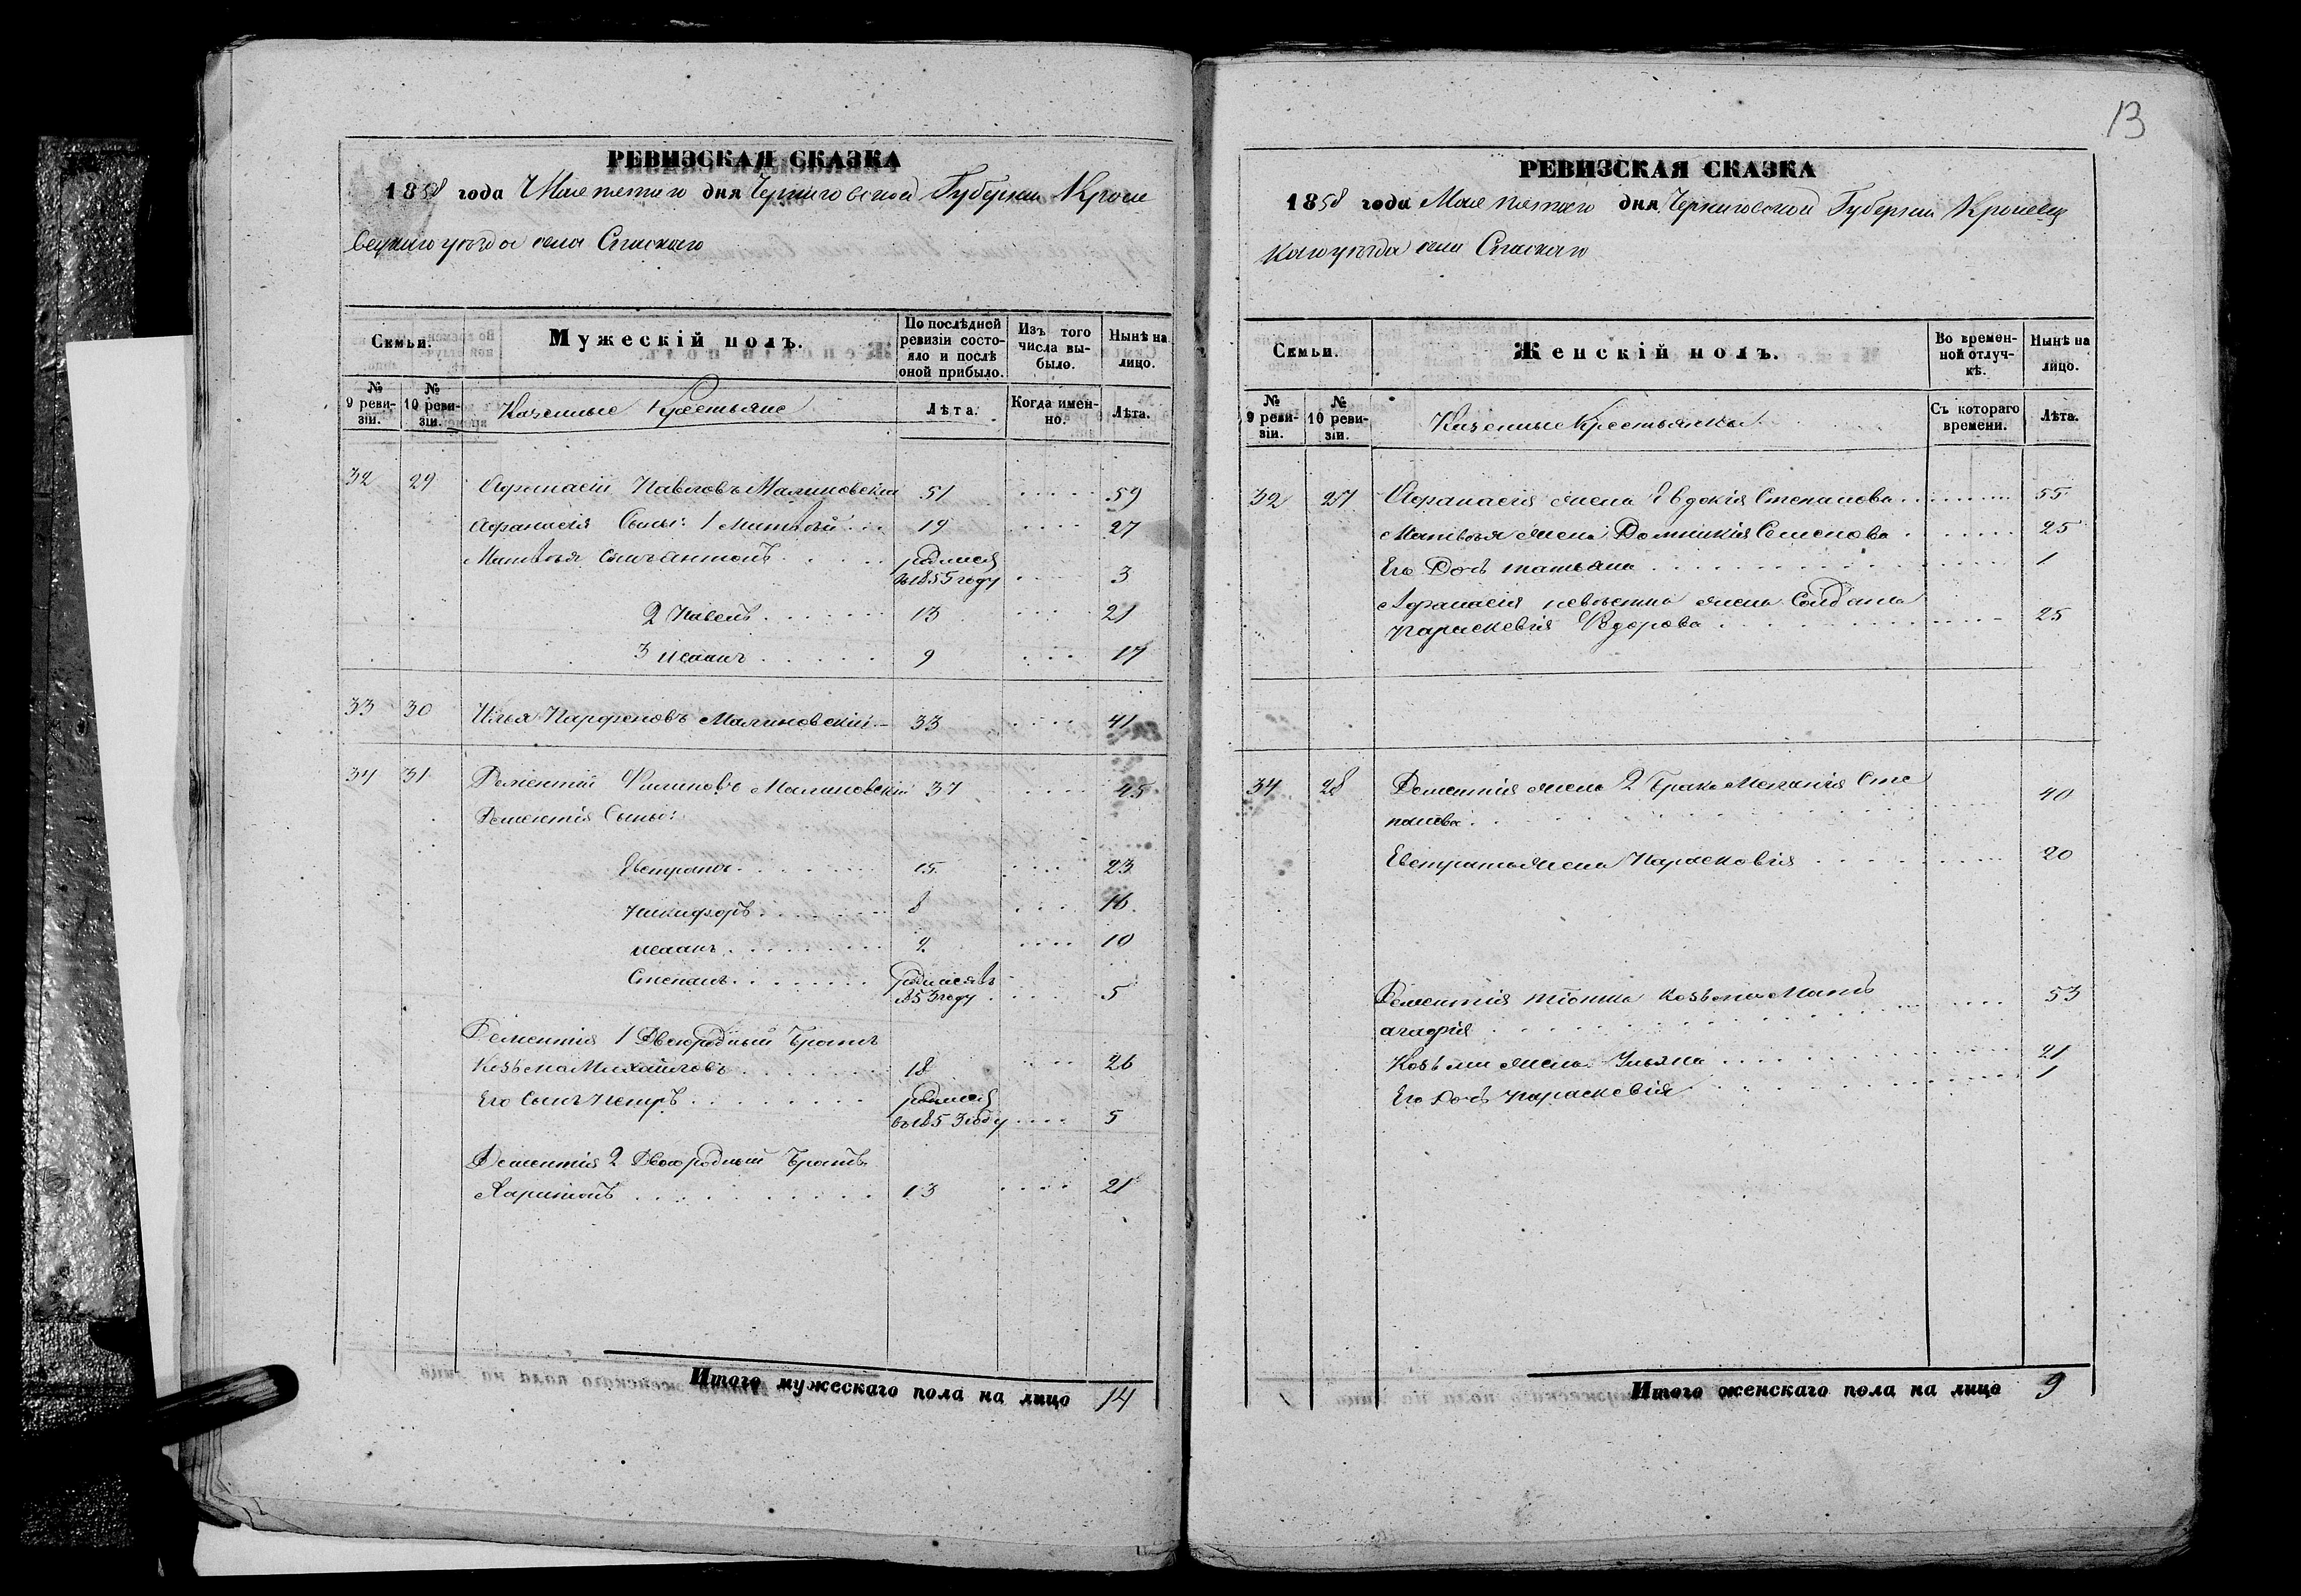 РЕВИЗСКАЯ СКАЗКА
1858 года Мая пятаго дня Черниговской Губерніи Кроле
вецкаго уезда села Спаскаго
Семьи.
Мужескій полъ.
По послѣдней ревизіи состояло и послѣ оной прибыло.
Изъ того числа выбыло.
Нынѣ на лицо.
№ 9 ревизіи.
№ 10 ревизіи.
Казенные Крестьяне
Лѣта.
Когда именно.
Лѣта.
32 29 Афанасій Павловъ Малиновскій 51 59
Афанасія Сыны: 1 Матвѣй 19 27
Матвѣя сынъ Антонъ родился въ 1855 году 3
2 Павелъ 13 21
3 Иванъ 9 17
33 30 Илья Парфеновъ Малиновскій 33 41
34 31 Дементій Филиповъ Малиновскій 37 45
Дементія Сыны:
Евстратъ 15 23
Никифоръ 8 16
Иванъ 2 10
Степанъ родился въ 853 году 5
Дементія 1 Двоюродный Братъ
Козьма Михайловъ 18 26
Его Сынъ Петръ родился въ 1853 году 5
Дементія 2 Двоюродный Братъ
Харитонъ 13 21
Итого мужескаго пола на лицо 14
13
РЕВИЗСКАЯ СКАЗКА
1858 года Мая пятаго дня Черниговской Губерніи Кролевец
каго уезда села Спаскаго
Семьи.
Женскій полъ.
Во временной отлучкѣ.
Нынѣ на лицо.
№ 9 ревизіи.
№ 10 ревизіи.
Казенные Крестьянки
Съ котораго времени.
Лѣта.
32 27 Афанасія жена Евдокія Степанова 55
Матвѣя жена Домникія Семенова 25
Его Дочь татьяна 1
Афанасія невѣстка жена Солдата
Параскевія Федорова 25
34 28 Дементія жена 2 брака Меланія Сте
панова 40
Евстрата жена Парасковія 20
Дементія тіотка Козьмы Мать 53
агафія
Козьмы жена Ульяна 21
Его Дочь Параскевія 1
Итого женскаго пола на лицо 9